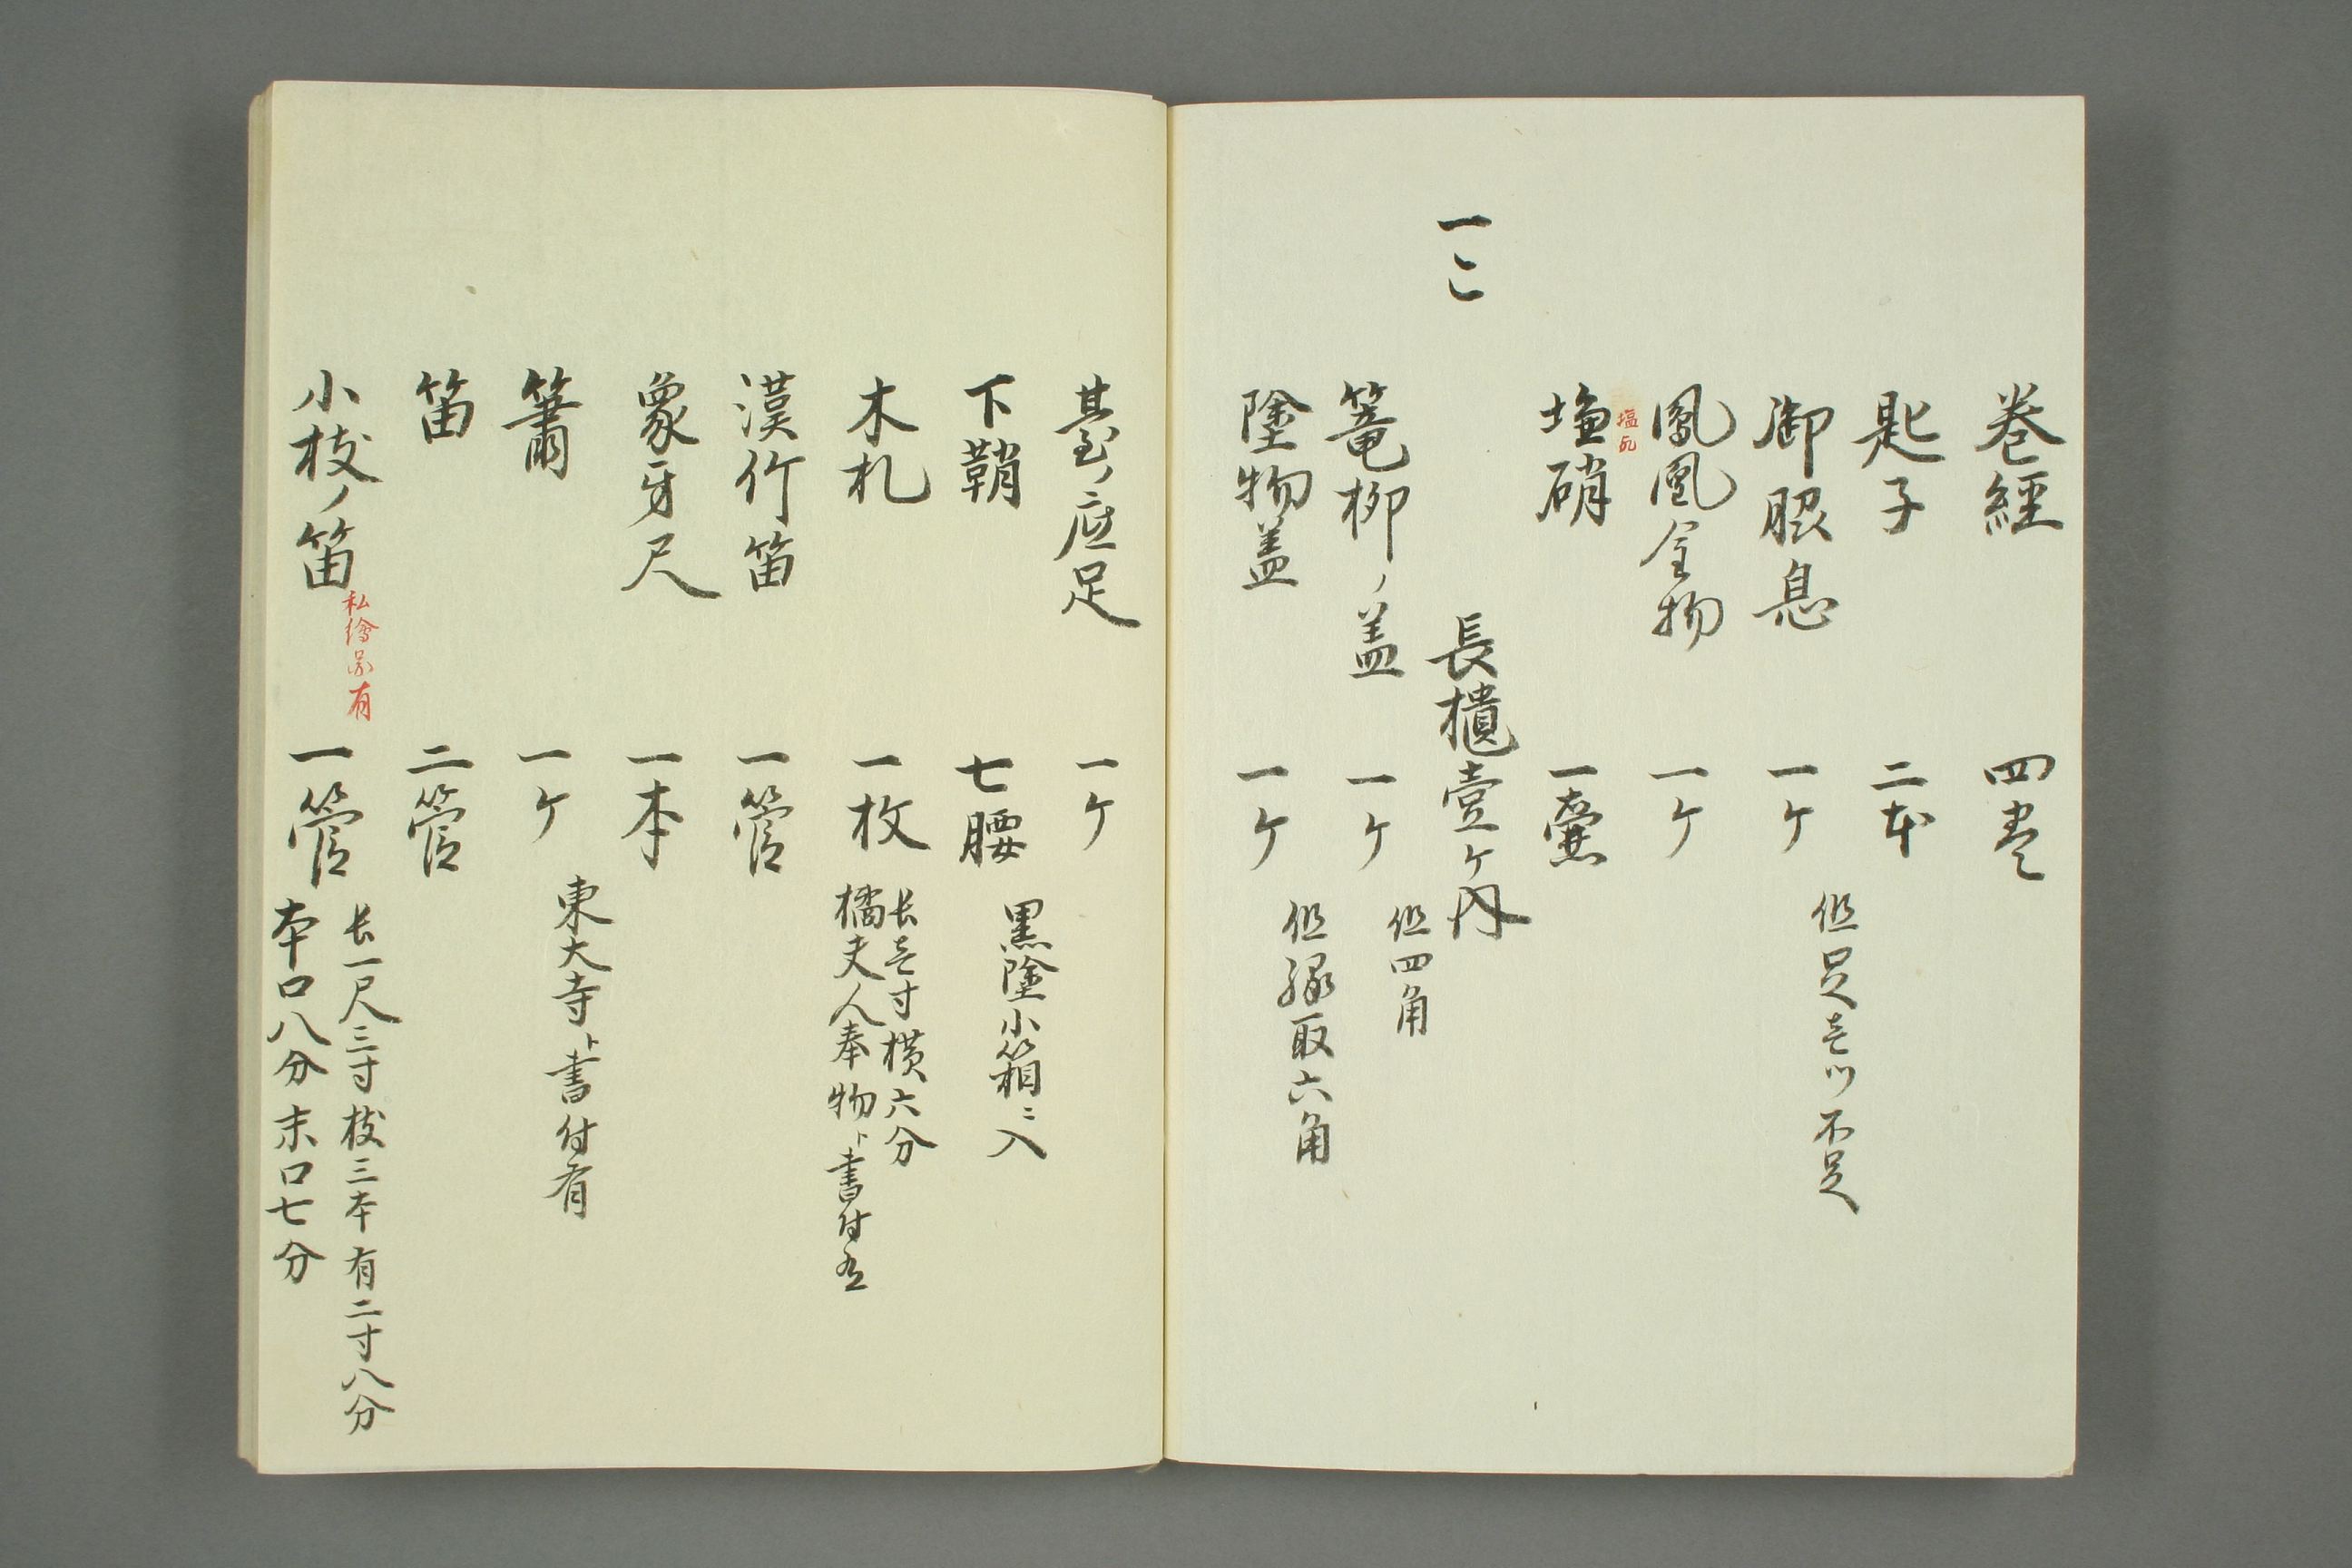 巻經 四巻
匙子 二本
御脇息 一ケ 但足壱ツ不足
鳳凰金物 一ケ
塩硝 一嚢
一ニ 長櫃壹ケ内
篭柳ノ盖 一ケ 但四角
塗物盖 一ケ 但縁取六角
臺ノ庭足 一ケ
下鞘 七腰 黒塗小箱ニ入
木札 一枚 長壱寸横六分
橘夫人奉物ト書付有
漢竹笛 一管
象牙尺 一本
簫 一ケ 東大寺ト書付有
笛 二管
小枝ノ笛 私繪図有 一管 长一尺三寸枝三本有二寸八分
本口八分末口七分